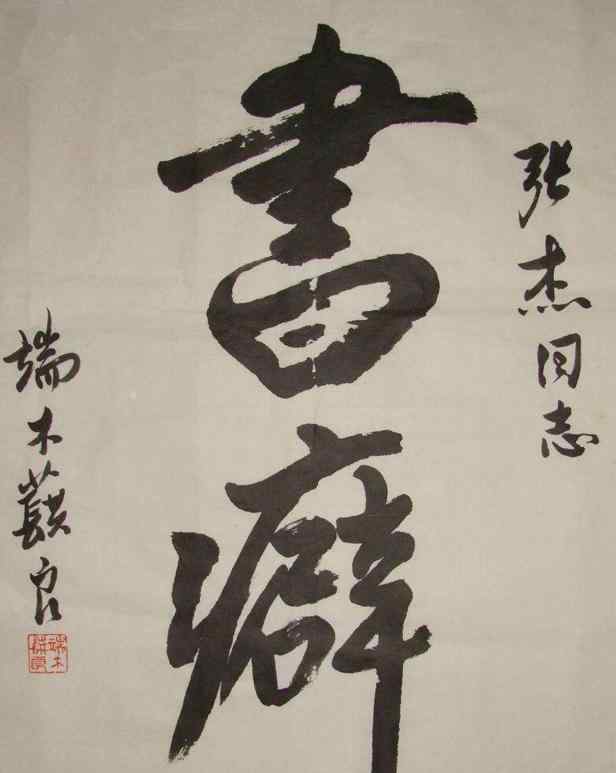 张杰同志
書癖
端木蕻良
端木
蕻良